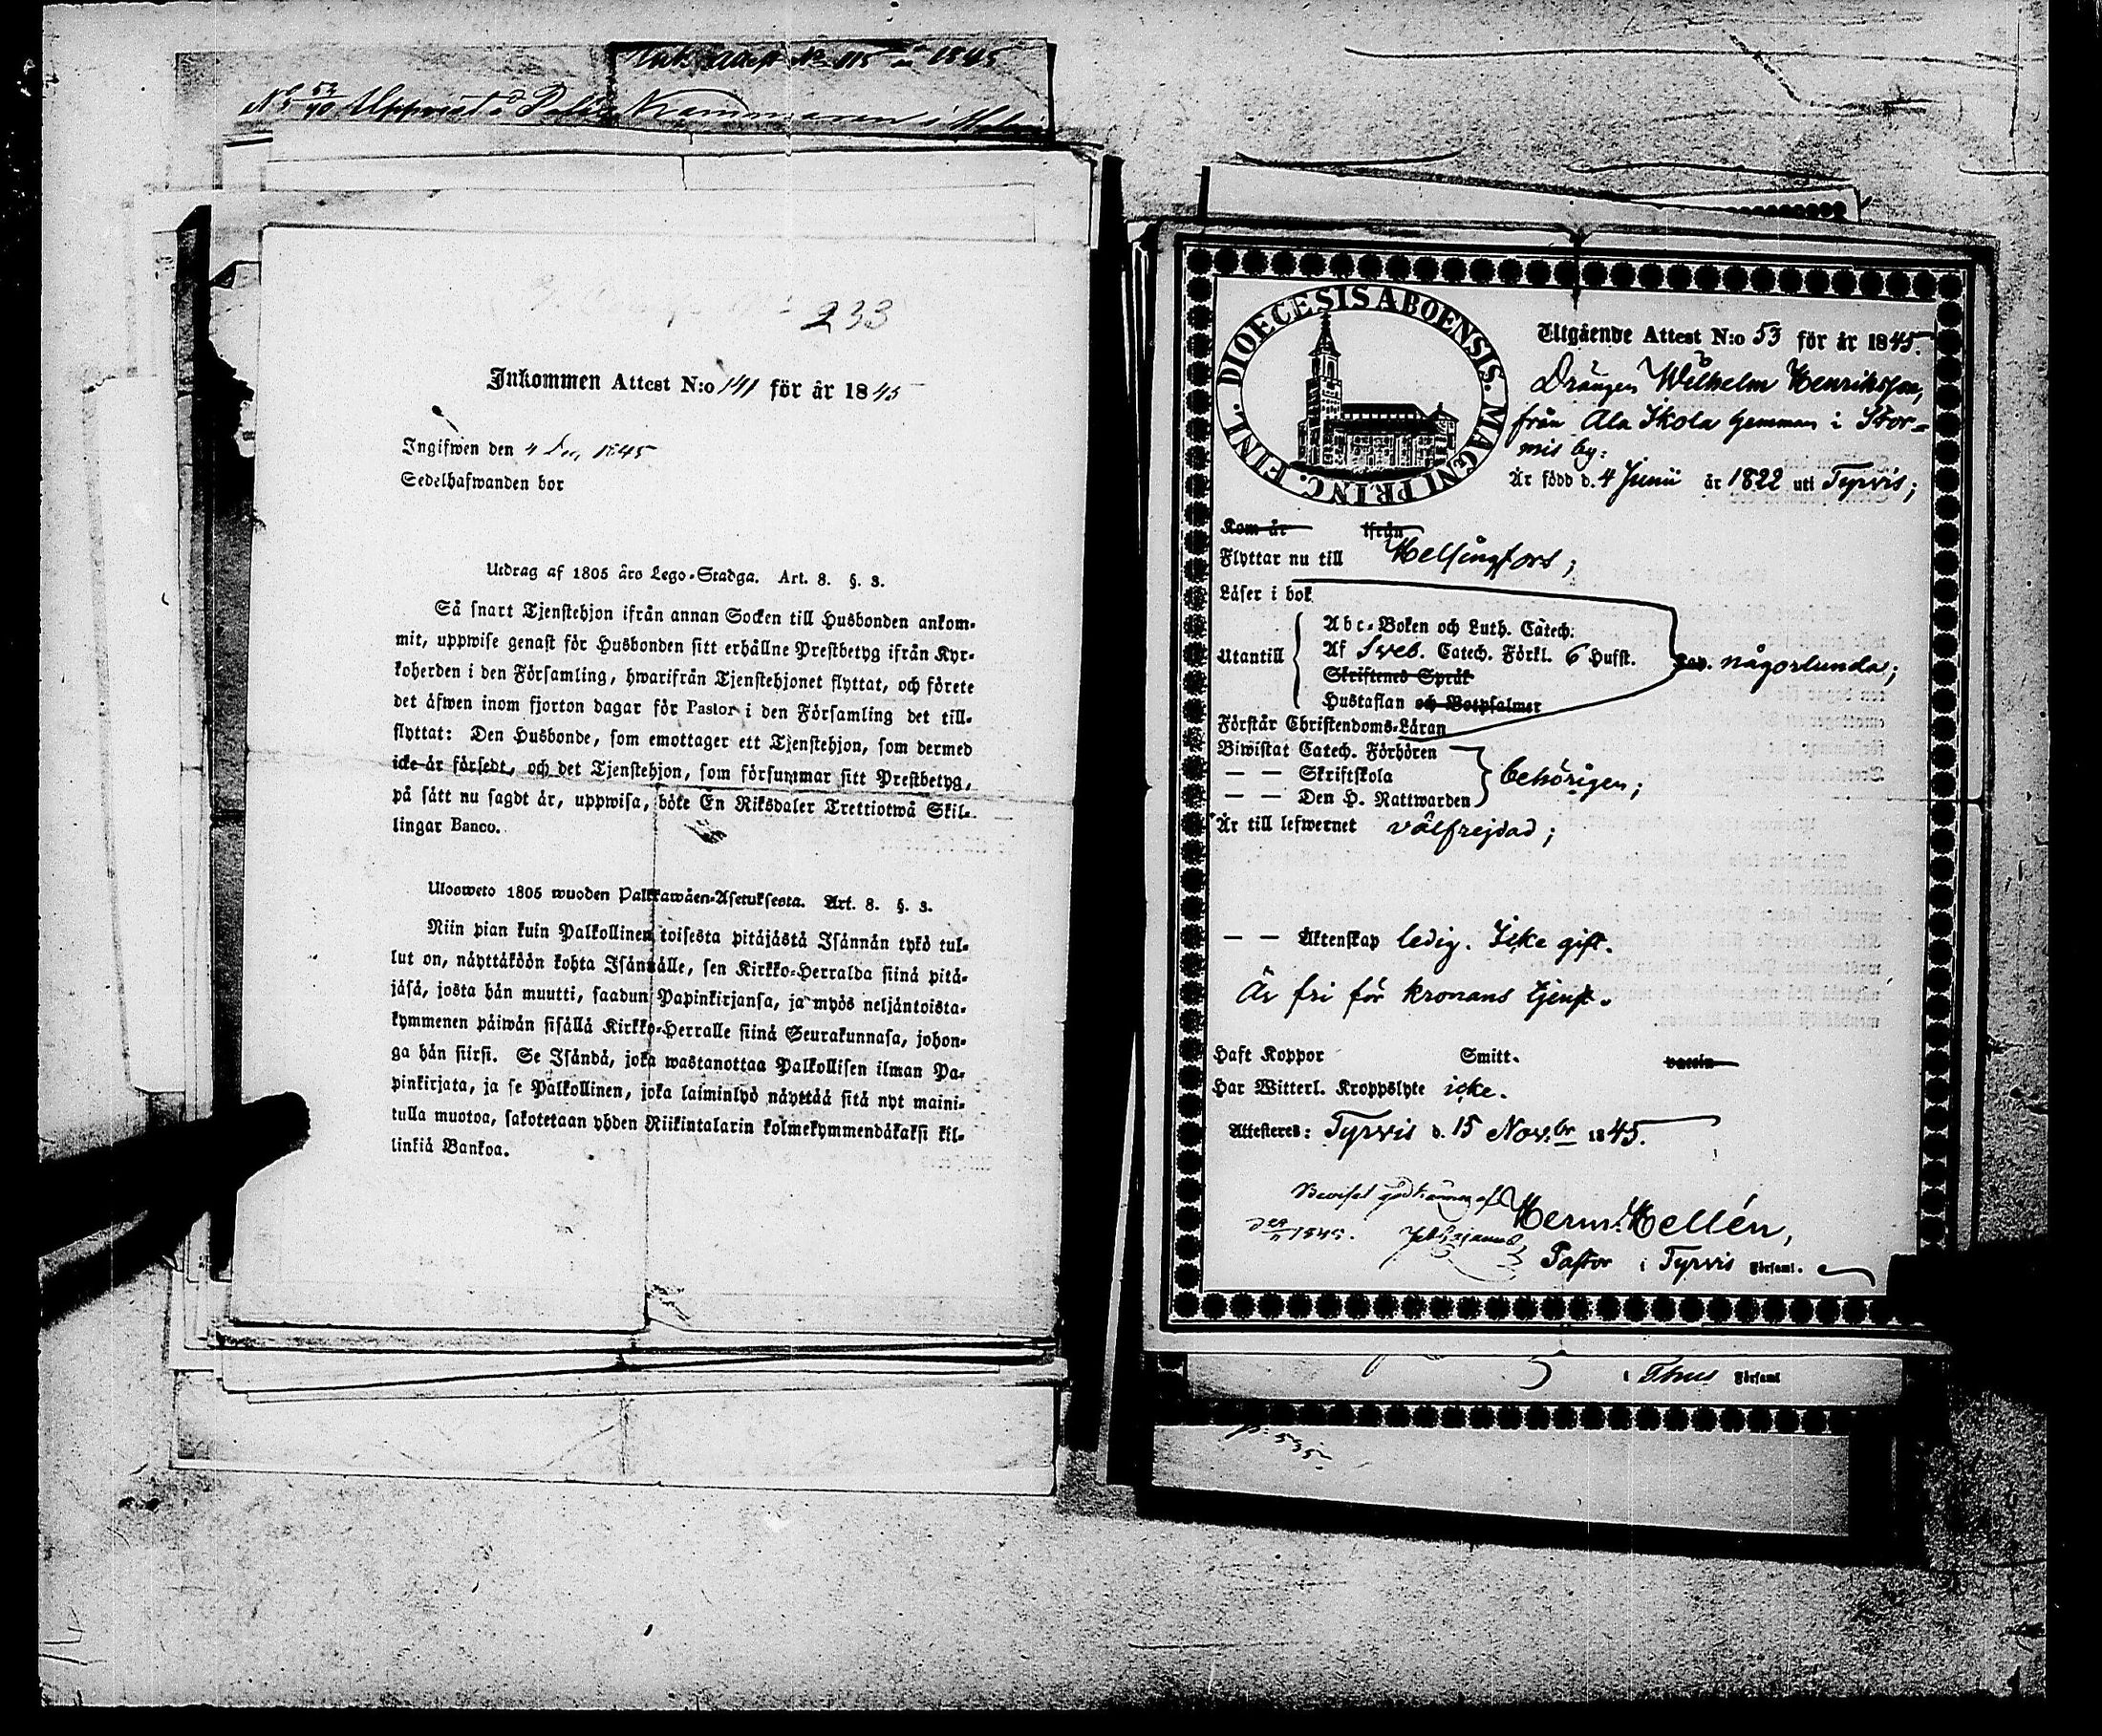 Ink. Attest No 115 år 1845
No 52/40 Uppvist i Polis Kammaren i
233
Inkommen Attest N:o 141 för år 1845
Ingifwen den 4 Dec. 1845
Sedelhafwanden bor
Utdrag af 1805 års Lego-Stadga. Art. 8. §. 3.
Så snart Tjenstehjon ifrån annan Socken till Husbonden ankom-
mit, uppwise genast för Husbonden sitt erhållne Prestbetyg ifrån Kyr-
koherden i den Församling, hwarifrån Tjenstehjonet flyttat, och förete
det äfwen inom fjorton dagar för Pastor i den Församling det till-
flyttat: Den Husbonde, som emottager ett Tjenstehjon, som dermed
icke är försedt, och det Tjenstehjon, som försummar sitt Prestbetyg,
på sätt nu sagdt är, uppwisa, böte En Riksdaler Trettiotwå Skil-
lingar Banco.
Ulosweto 1805 wuoden Palkkawäen-Asetuksesta. Art. 8. §. 3.
Niin pian kuin Palkollinen toisesta pitäjästä Isännän tykö tul-
lut on, näyttäköön kohta Isännälle, sen Kirkko-Herralda siinä pitä-
jäsä, josta hän muutti, saadun Papinkirjansa, ja myös neljäntoista-
kymmenen päiwän sisällä Kirkko-Herralle siinä Seurakunnasa, johon-
ga hän siirsi. Se Isändä, joka wastanottaa Palkollisen ilman Pa-
pinkirjata, ja se Palkollinen, joka laiminlyö näyttää sitä nyt maini-
tulla muotoa, sakotetaan yhden Riikintalarin kolmekymmendäkaksi kil-
linkiä Bankoa.
DIOECESIS ABOENSIS. MAGNI PRINC. FINL.
Utgående Attest N:o 53 för år 1845.
Drängen Wilhelm Henriksson,
från Ala Skola hemman i Stor-
mis by:
Är född d. 4 Junii år 1822 uti Tyrvis;
Kom år ifrån
Flyttar nu till Helsingfors;
Läser i bok
Abc-Boken och Luth. Catech.
Utantill Af Sveb. Catech. Förkl. 6 Hufst. någorlunda;
Skriftenes Språk
Hustaflan och Botpsalmer
Förstår Christendoms-Läran
Biwistat Catech. Förhören
— — Skriftskola behörigen;
— — Den H. Nattwarden
Är till lefwernet välfrejdad;
— — Äktenskap ledig. Icke gift.
Är fri för kronans tjenst.
Haft Koppor Smitt. vaccin
Har Witterl. Kroppslyte icke.
Attesteres: Tyrvis d. 15 Nov:br 1845.
Beviset godkännes af
1845.
Herm. Hellén,
Pastor i Tyrvis Församl.
i Thus Församl
p. 535